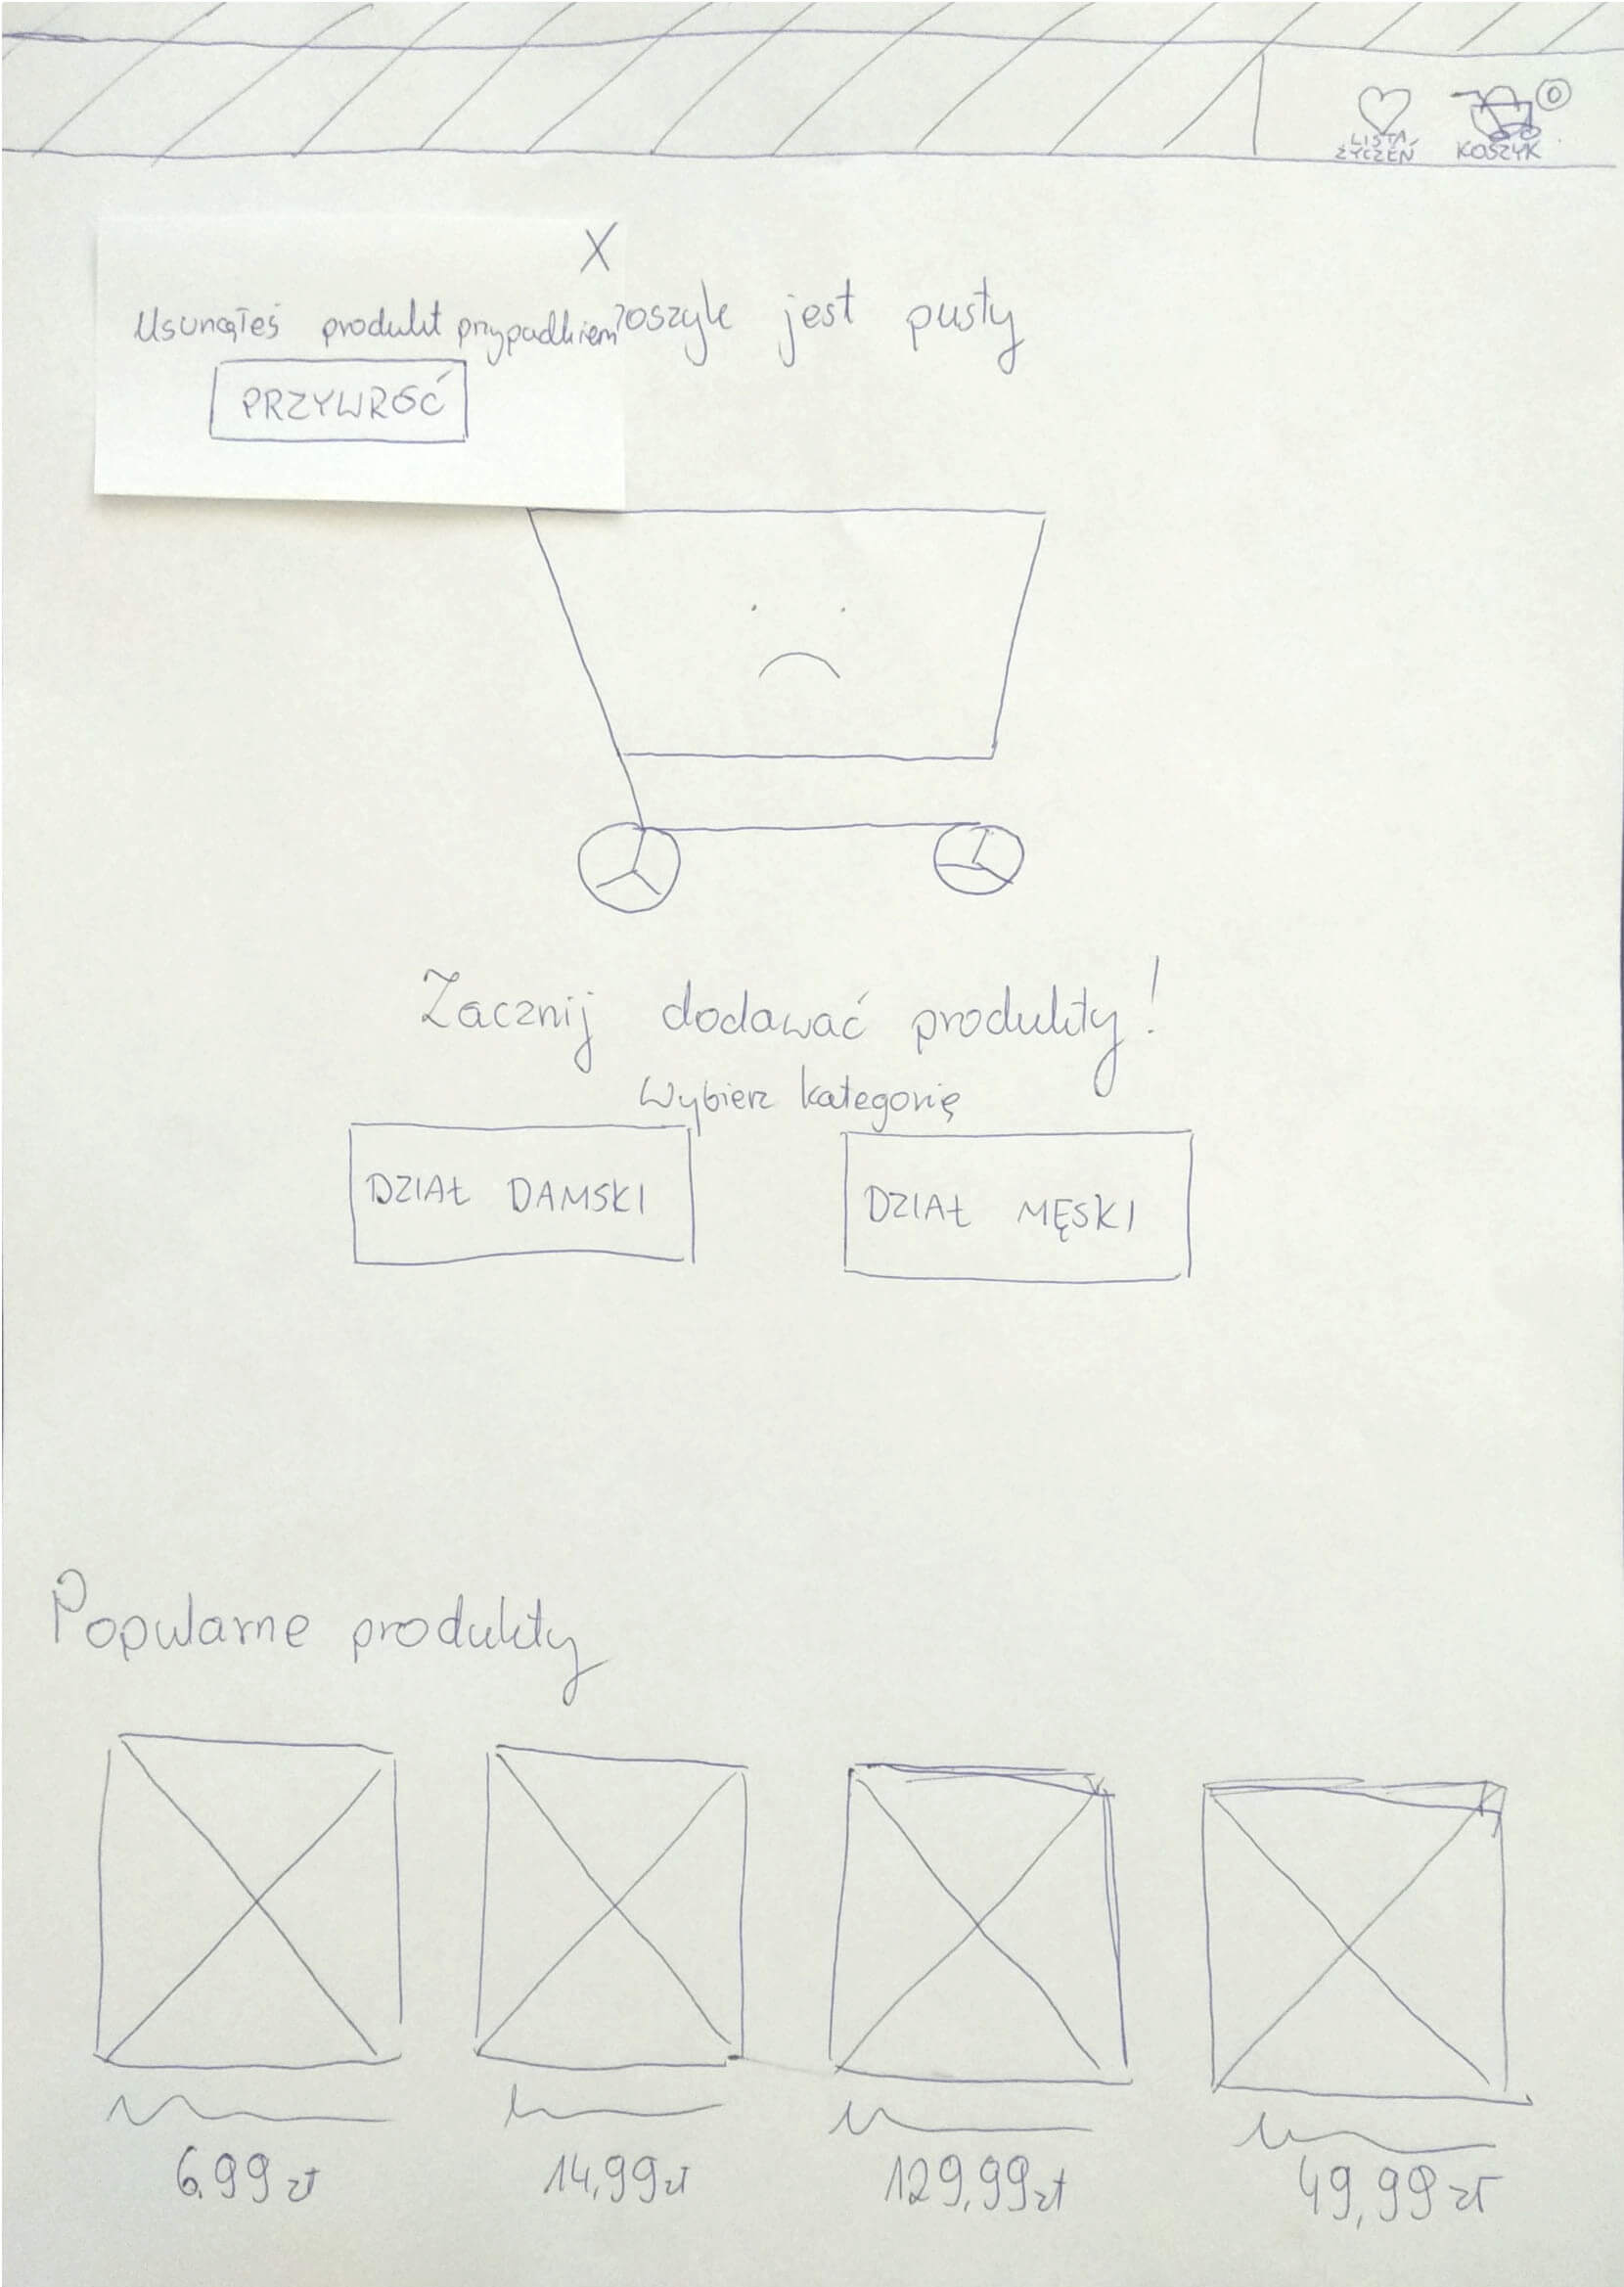 0
LISTA KOSZYK
ŻYCZEŃ
X
Usunąłeś produkt przypadkiem
oszyk jest pusty
PRZYWRÓĆ
Zacznij dodawać produkty!
Wybierz kategorię
DZIAŁ DAMSKI DZIAŁ MĘSKI
Popularne produkty
6,99 zł 14,99 zł 129,99 zł 49,99 zł